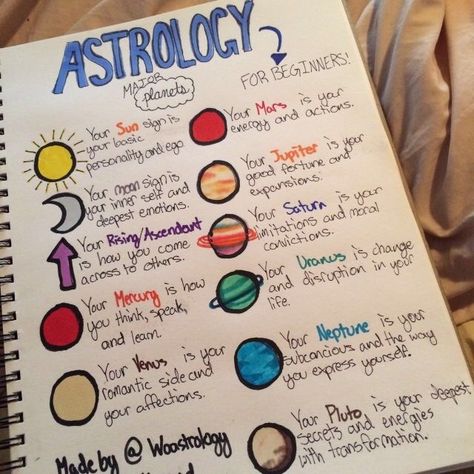 ASTROLOGY
FOR BEGINNERS!
MAJOR
planets
Your Sun sign is
your basic
personality and ego
Your moon sign is
your inner self and
deepest emotions.
Your Rising/Ascendant
is how you come
across to others.
Your Mercury is how
you think, speak,
and learn.
Your Venus is your
romantic side and
your affections.
Made by @ Woastrology
Your Mars is your
energy and actions.
Your Jupiter is your
good fortune and
expansions.
Your Saturn is your
limitations and moral
convictions.
Your Uranus is change
and disruption in your
life.
Your Neptune is your
subconcious and the way
you express yourself.
Your Pluto is your deepest
secrets and energies
with transformation.